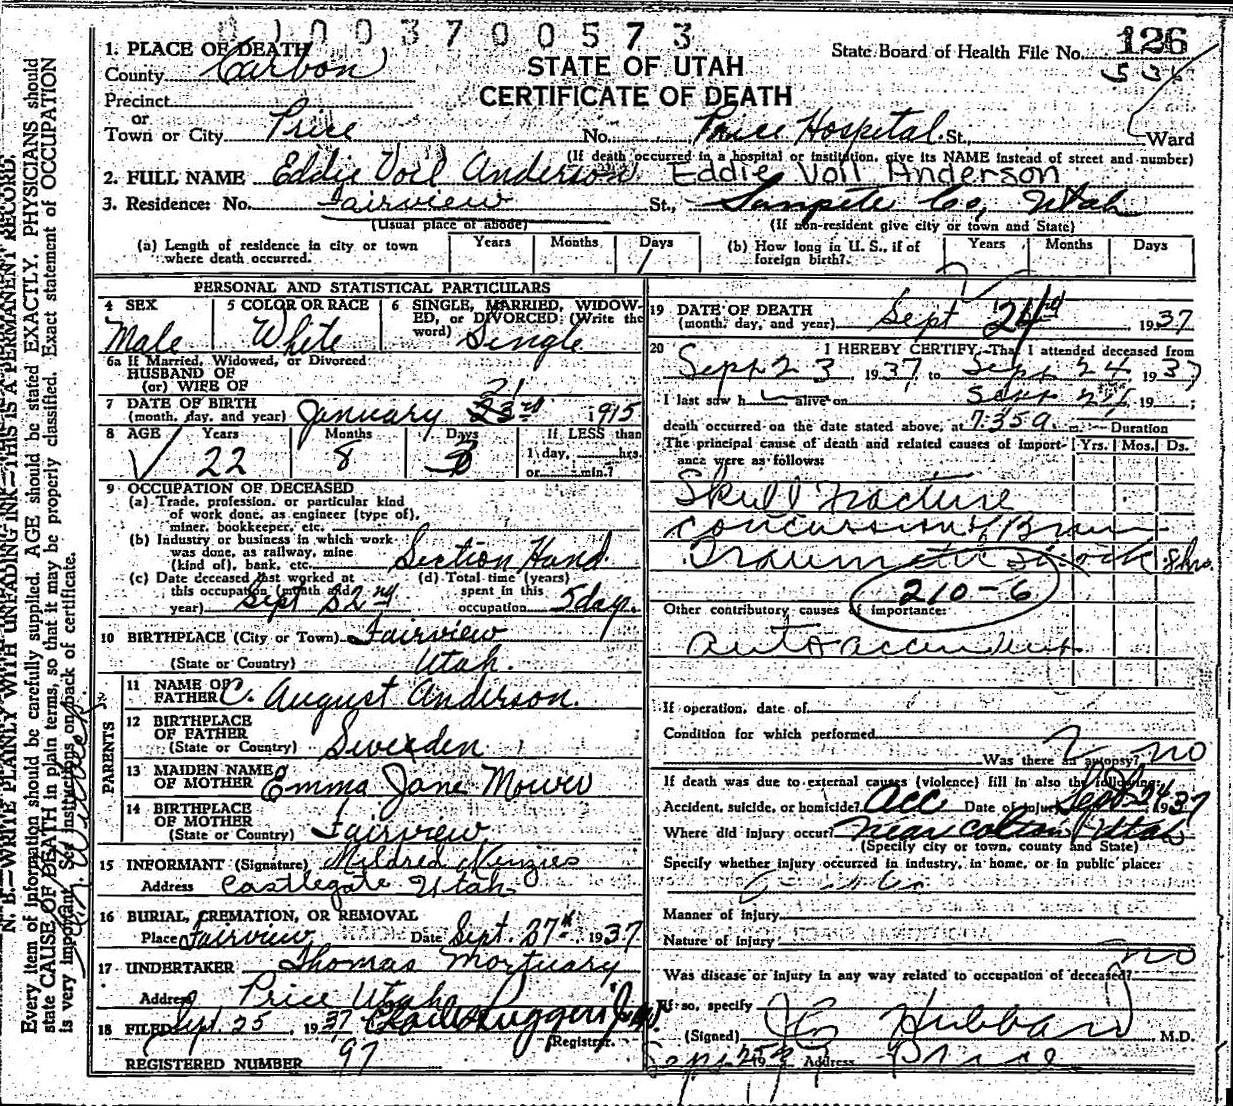 0100370 0573
1. PLACE OF DEATH
County Carbon
State Board of Health File No. 126
536
STATE OF UTAH
CERTIFICATE OF DEATH
Precinct
or
Town or City Price No. Price Hospital St., Ward
(If death occurred in a hospital or institution, give its NAME instead of street and number)
2. FULL NAME Eddie Voil Anderson Eddie Voil Anderson
3. Residence: No. Fairview St., Sanpete Co, Utah
(Usual place of abode) (If non-resident give city or town and State)
(a) Length of residence in city or town where death occurred. Years Months Days 1
(b) How long in U. S., if of foreign birth? Years Months Days
PERSONAL AND STATISTICAL PARTICULARS
4 SEX Male
5 COLOR OR RACE White
6 SINGLE, MARRIED, WIDOWED, or DIVORCED: (Write the word) Single
6a If Married, Widowed, or Divorced
HUSBAND OF
(or) WIFE OF
7 DATE OF BIRTH (month, day, and year) January 23rd 1915
21
8 AGE Years 22 Months 8 Days 3 If LESS than 1 day, hrs. or min.?
9 OCCUPATION OF DECEASED
(a) Trade, profession, or particular kind of work done, as engineer (type of), miner, bookkeeper, etc.
(b) Industry or business in which work was done, as railway, mine (kind of), bank, etc. Section Hand
(c) Date deceased last worked at this occupation (month and year) Sept 22nd
(d) Total time (years) spent in this occupation 5 day.
10 BIRTHPLACE (City or Town) Fairview
(State or Country) Utah.
PARENTS
11 NAME OF FATHER C. August Anderson.
12 BIRTHPLACE OF FATHER
(State or Country) Sweden
13 MAIDEN NAME OF MOTHER Emma Jane Mower
14 BIRTHPLACE OF MOTHER
(State or Country) Fairview
15 INFORMANT (Signature) Mildred
Address Castlegate Utah
16 BURIAL, CREMATION, OR REMOVAL
Place Fairview Date Sept. 27th 1937
17 UNDERTAKER Thomas Mortuary
Address Price Utah
18 FILED Sept. 25, 1937 Ruggeri
Registrar.
REGISTERED NUMBER 97
19 DATE OF DEATH (month, day, and year) Sept 24 1937
20 I HEREBY CERTIFY, That I attended deceased from
Sept 23 1937 to Sept 24 1937
I last saw h alive on Sept 24 19 ;
death occurred on the date stated above, at 7:35 a. m. Duration
The principal cause of death and related causes of importance were as follows: Yrs. Mos. Ds.
Skull Fracture
Concussion of Brain
Traumatic Shock 8 hrs.
210-6
Other contributory causes of importance:
auto accident
If operation, date of
Condition for which performed
Was there an autopsy? no
If death was due to external causes (violence) fill in also the following:
Accident, suicide, or homicide? Acc Date of injury Sept 24 1937
Where did injury occur? near Colton Utah
(Specify city or town, county and State)
Specify whether injury occurred in industry, in home, or in public place:
Manner of injury
Nature of injury
Was disease or injury in any way related to occupation of deceased? no
If so, specify
(Signed) Hubbard M.D.
Sept 25 19 Address Price
N. B.—WRITE PLAINLY WITH UNFADING INK—THIS IS A PERMANENT RECORD.
Every item of information should be carefully supplied. AGE should be stated EXACTLY. PHYSICIANS should
state CAUSE OF DEATH in plain terms, so that it may be properly classified. Exact statement of OCCUPATION
is very important. See instructions on back of certificate.